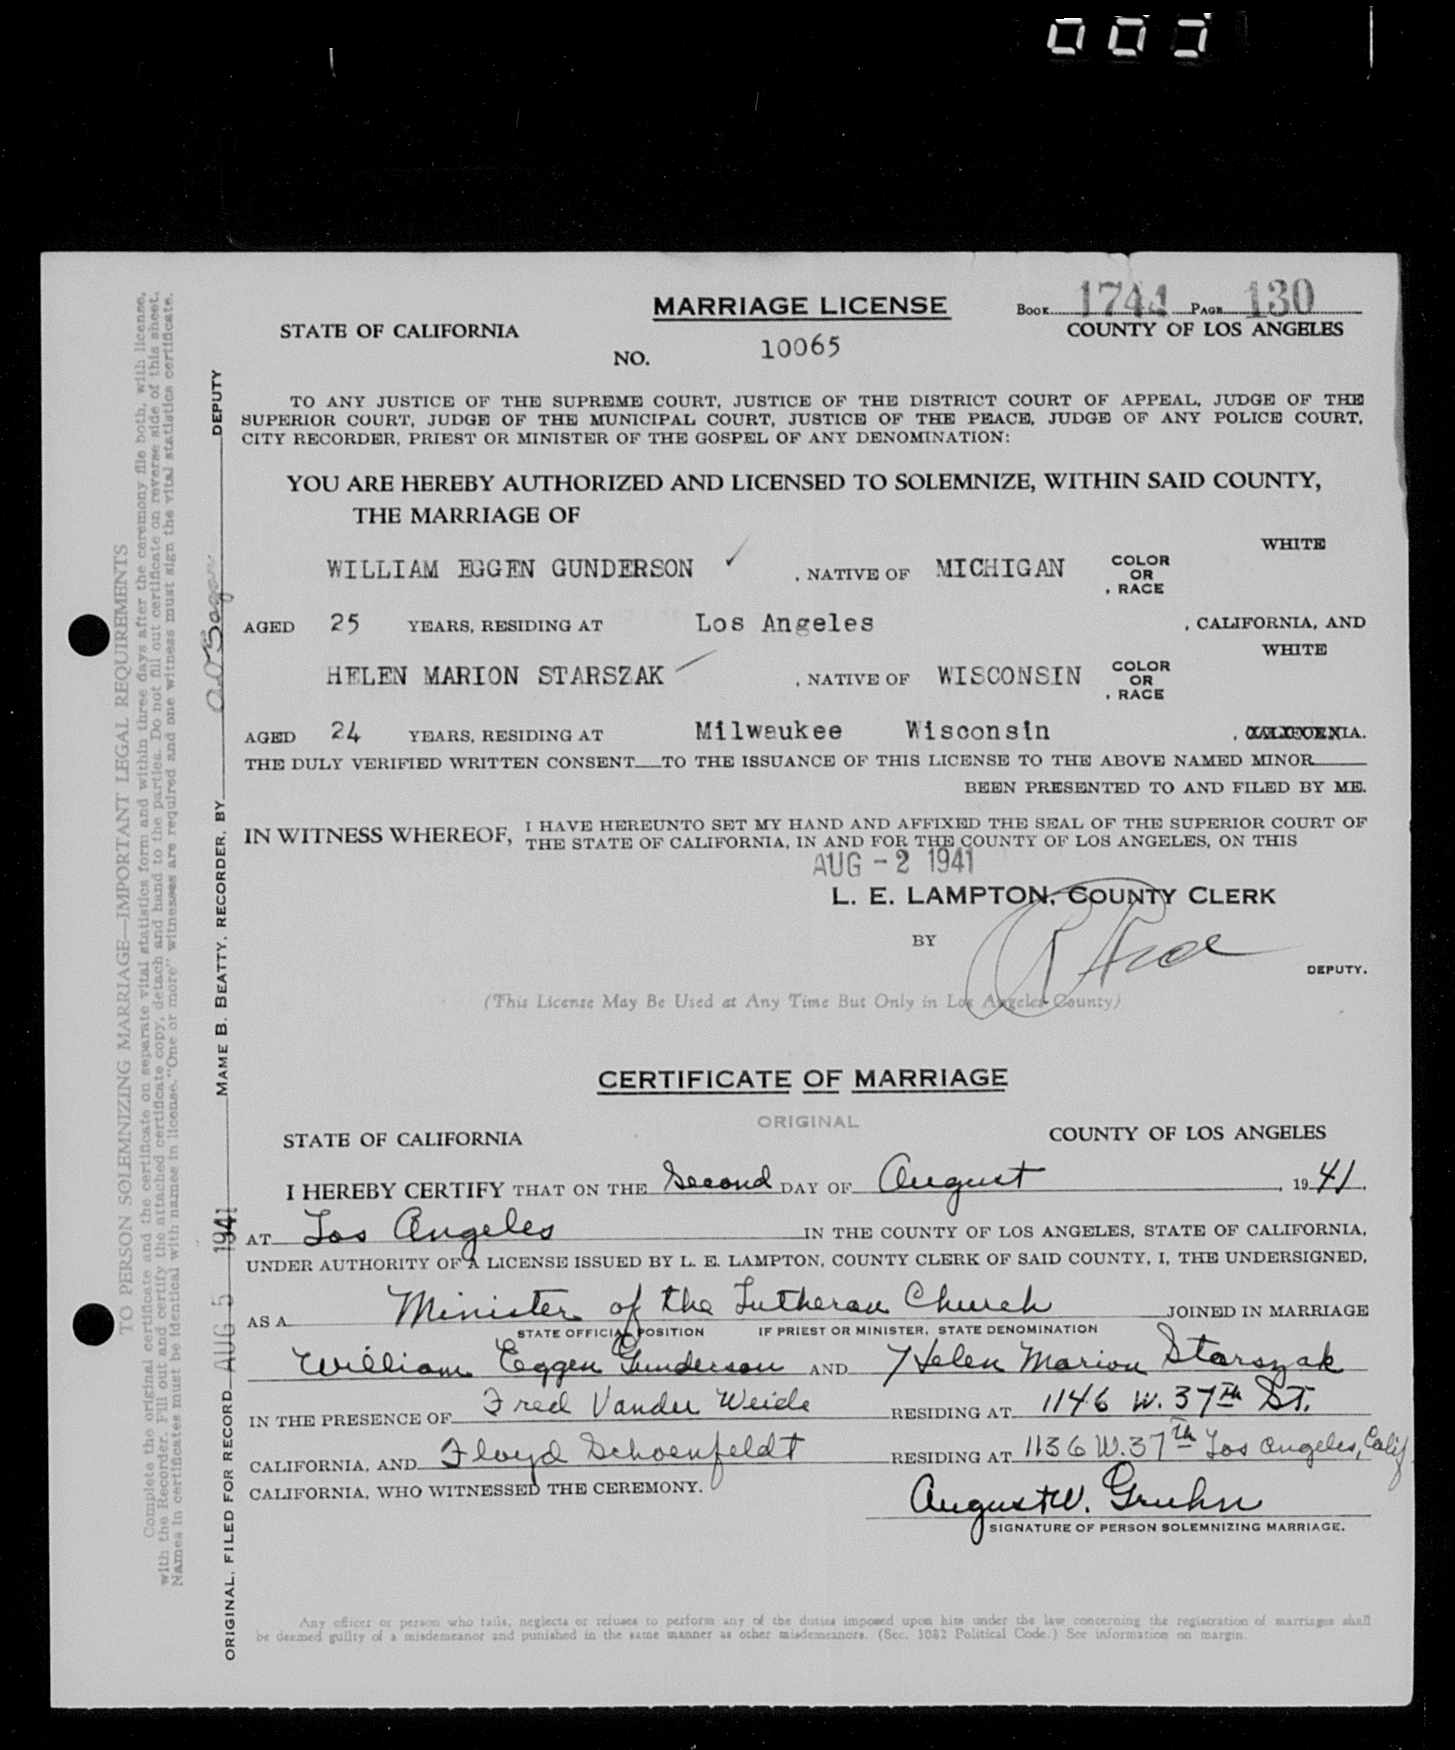 MARRIAGE LICENSE
BOOK 1744 PAGE 130
STATE OF CALIFORNIA
COUNTY OF LOS ANGELES
NO. 10065
TO ANY JUSTICE OF THE SUPREME COURT, JUSTICE OF THE DISTRICT COURT OF APPEAL, JUDGE OF THE
SUPERIOR COURT, JUDGE OF THE MUNICIPAL COURT, JUSTICE OF THE PEACE, JUDGE OF ANY POLICE COURT,
CITY RECORDER, PRIEST OR MINISTER OF THE GOSPEL OF ANY DENOMINATION:
YOU ARE HEREBY AUTHORIZED AND LICENSED TO SOLEMNIZE, WITHIN SAID COUNTY,
THE MARRIAGE OF
WILLIAM EGGEN GUNDERSON ✓, NATIVE OF MICHIGAN, COLOR OR RACE WHITE
AGED 25 YEARS, RESIDING AT Los Angeles, CALIFORNIA, AND
HELEN MARION STARSZAK, NATIVE OF WISCONSIN, COLOR OR RACE WHITE
AGED 24 YEARS, RESIDING AT Milwaukee Wisconsin, CALIFORNIA.
THE DULY VERIFIED WRITTEN CONSENT TO THE ISSUANCE OF THIS LICENSE TO THE ABOVE NAMED MINOR
BEEN PRESENTED TO AND FILED BY ME.
IN WITNESS WHEREOF, I HAVE HEREUNTO SET MY HAND AND AFFIXED THE SEAL OF THE SUPERIOR COURT OF
THE STATE OF CALIFORNIA, IN AND FOR THE COUNTY OF LOS ANGELES, ON THIS
AUG - 2 1941
L. E. LAMPTON, COUNTY CLERK
BY
DEPUTY.
(This License May Be Used at Any Time But Only in Los Angeles County)
CERTIFICATE OF MARRIAGE
ORIGINAL
STATE OF CALIFORNIA
COUNTY OF LOS ANGELES
I HEREBY CERTIFY THAT ON THE Second DAY OF August, 1941,
AT Los Angeles IN THE COUNTY OF LOS ANGELES, STATE OF CALIFORNIA,
UNDER AUTHORITY OF A LICENSE ISSUED BY L. E. LAMPTON, COUNTY CLERK OF SAID COUNTY, I, THE UNDERSIGNED,
AS A Minister of the Lutheran Church JOINED IN MARRIAGE
STATE OFFICIAL POSITION IF PRIEST OR MINISTER, STATE DENOMINATION
William Eggen Gunderson AND Helen Marion Starszak
IN THE PRESENCE OF Fred Vander Weide RESIDING AT 1146 W. 37th St.
CALIFORNIA, AND Floyd Schoenfeldt RESIDING AT 1136 W. 37th Los Angeles, Calif
CALIFORNIA, WHO WITNESSED THE CEREMONY.
August W. Gruhn
SIGNATURE OF PERSON SOLEMNIZING MARRIAGE.
Any officer or person who fails, neglects or refuses to perform any of the duties imposed upon him under the law concerning the registration of marriages shall
be deemed guilty of a misdemeanor and punished in the same manner as other misdemeanors. (Sec. 3082 Political Code.) See information on margin.
TO PERSON SOLEMNIZING MARRIAGE—IMPORTANT LEGAL REQUIREMENTS
Complete the original certificate and the certificate on separate vital statistics form and within three days after the ceremony file both, with license,
with the Recorder. Fill out and certify the attached certificate copy, detach and hand to the parties. Do not fill out certificate on reverse side of this sheet.
Names in certificates must be identical with names in license. "One or more" witnesses are required and one witness must sign the vital statistics certificate.
ORIGINAL, FILED FOR RECORD AUG 5 1941 MAME B. BEATTY, RECORDER, BY DEPUTY